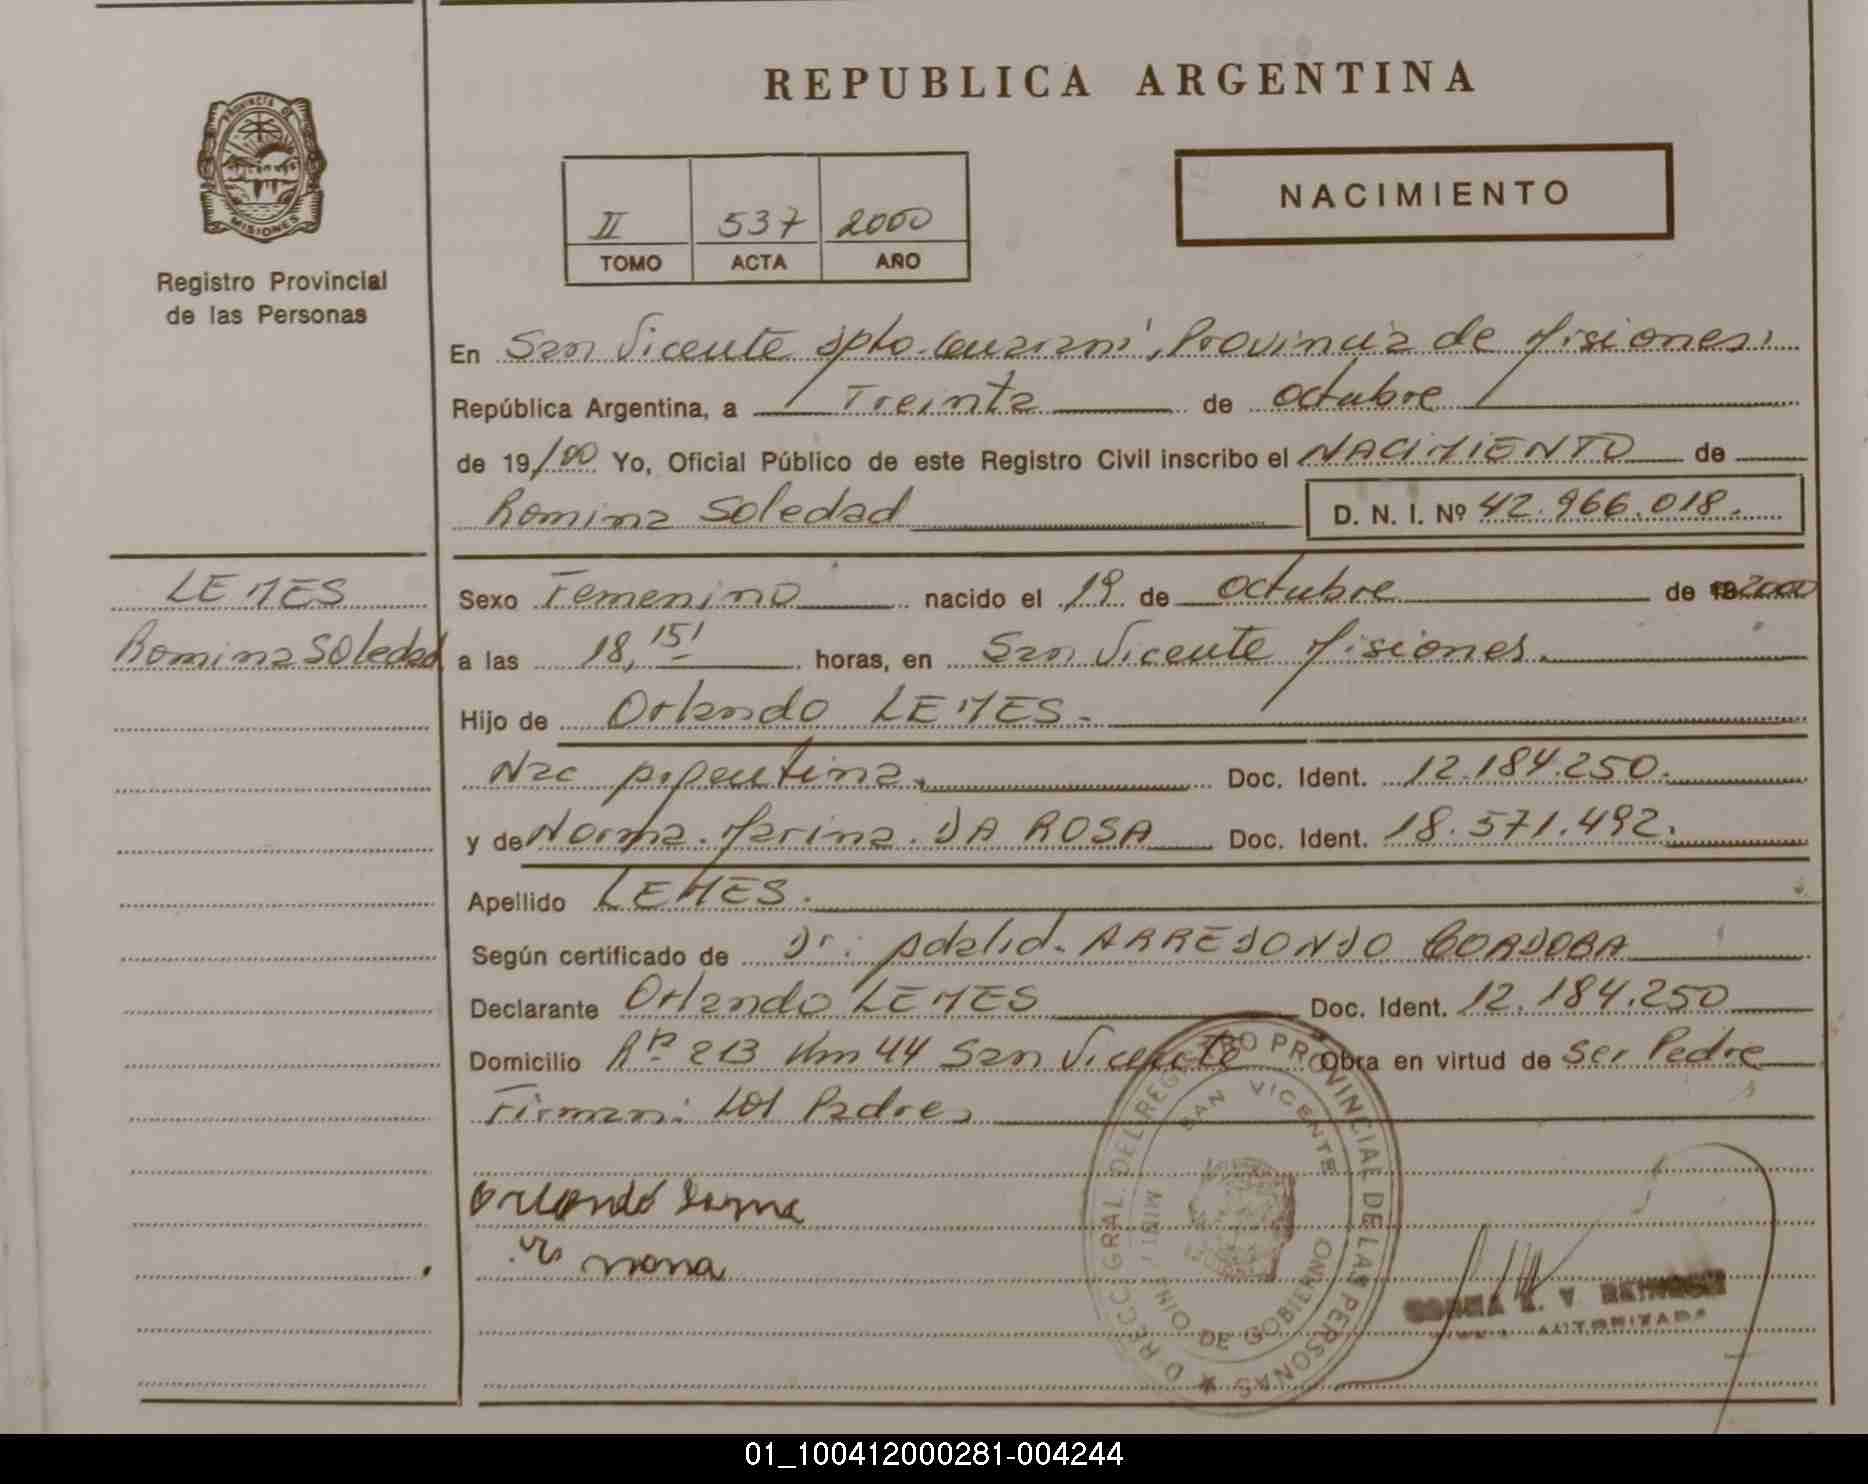 REPUBLICA ARGENTINA
PROVINCIA DE
MISIONES
Registro Provincial
de las Personas
II 537 2000
TOMO ACTA AÑO
NACIMIENTO
En San Vicente Dpto. Guarani, Provincia de Misiones,
República Argentina, a Treinta de octubre
de 19/00 Yo, Oficial Público de este Registro Civil inscribo el NACIMIENTO de
Romina Soledad D. N. I. Nº 42.966.018.
LEMES
Romina Soledad
Sexo Femenino nacido el 19 de octubre de 2000
a las 18,15 horas, en San Vicente Misiones.
Hijo de Orlando LEMES.
Nac Argentina. Doc. Ident. 12.184.250.
y de Norma. Marina. DA ROSA Doc. Ident. 18.571.492.
Apellido LEMES.
Según certificado de Dr. Adalid. ARREDONDO CORDOBA
Declarante Orlando LEMES Doc. Ident. 12.184.250
Domicilio Rn 213 Km 44 San Vicente Obra en virtud de ser Padre
Firman: Los Padres
DIRECC GRAL. DEL REGISTRO PROVINCIAL DE LAS PERSONAS
SAN VICENTE
DE GOBIERNO
Orlando
AUTORIZADA
01_100412000281-004244